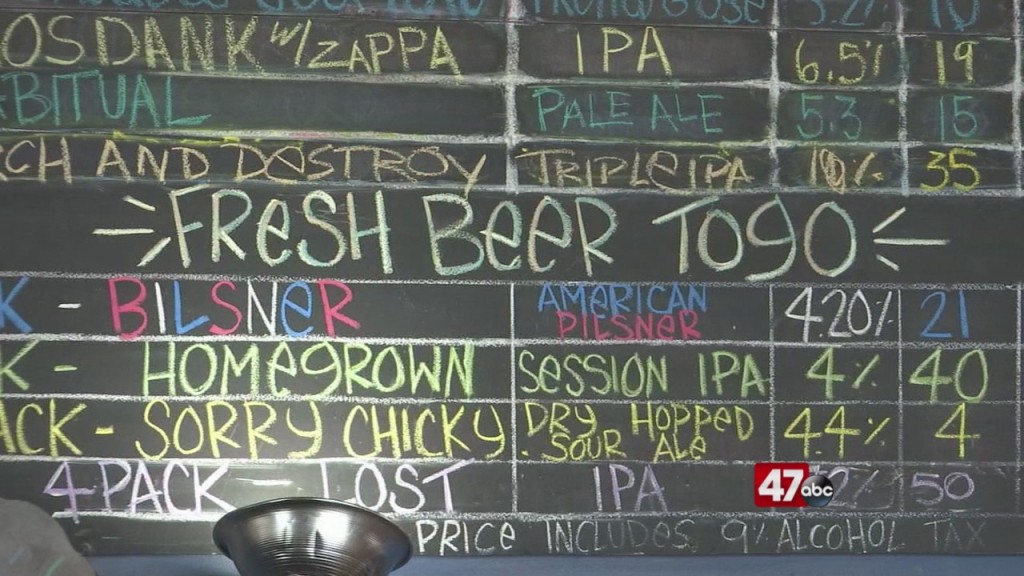 5.2% 10
OSDANK W/ZAPPA IPA 6.5% 19
BITUAL PALE ALE 5.3 15
CH AND DESTROY TRIPLE IPA 10% 35
FRESH BEER TO GO
K - BILSNER AMERICAN PILSNER 4.20% 21
K - HOMEGROWN SESSION IPA 4% 40
ACK - SORRY CHICKY DRY HOPPED SOUR ALE 44% 4
4 PACK - LOST IPA 2% 50
47abc
PRICE INCLUDES 9% ALCOHOL TAX